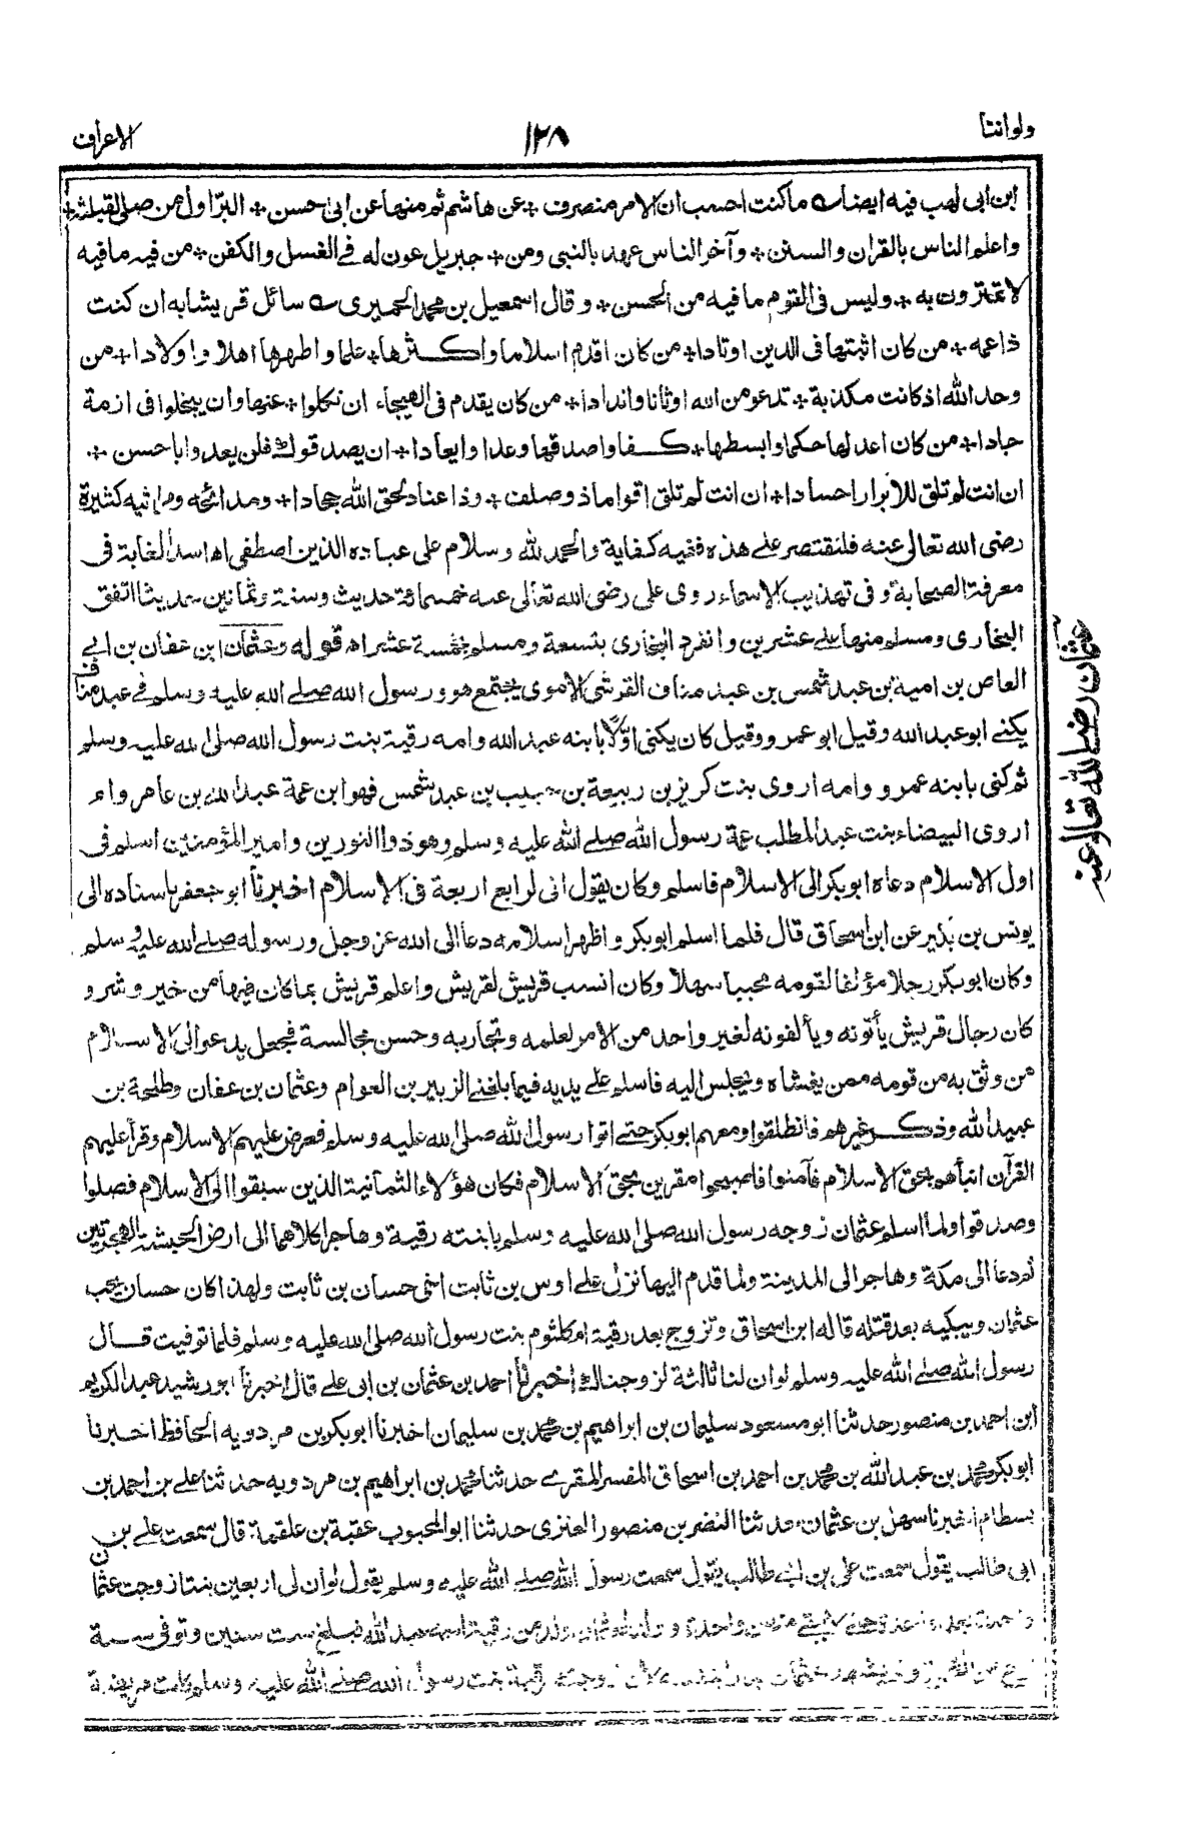 ولواننا
١٢٨
الاعراف
ابن ابى لهب فيه ايضا ما كنت احسب ان الامر منصرف * عن هاشم ثم منها عن ابى حسن * البرّ اول من صلى لقبلته *
واعلم الناس بالقران والسنن * وآخر الناس عهدا بالنبى ومن * جبريل عون له فى الغسل والكفن * من فيه ما فيه
لا تمترون به * وليس فى القوم ما فيه من الحسن * وقال اسمعيل بن محمد الحميرى سائل قريشا به ان كنت
ذا عمه * من كان اثبتها فى الدين اوتادا * من كان اقدم اسلاما واكثرها * علما واطهرها اهلا واولادا * من
وحد الله اذ كانت مكذبة * تدعو من الله اوثانا واندادا * من كان يقدم فى الهيجاء ان نكلوا * عنها وان يبخلوا فى ازمة
جادا * من كان اعدلها حكما وابسطها * كفا واصدقها وعدا وايعادا * ان يصدقوك فلن يعدوا ابا حسن *
ان انت لم تلق للابرار احسادا * ان انت لم تلق اقواما ذو صلف * وذا عناد لحق الله جحادا * ومدائحه ومراثيه كثيرة
رضى الله تعالى عنه فلنقتصر على هذه ففيه كفاية والحمد لله وسلام على عباده الذين اصطفى اه اسد الغابة فى
معرفة الصحابة و فى تهذيب الاسماء روى على رضى الله تعالى عنه خمسمائة حديث وستة وثمانين حديثا اتفق
البخارى ومسلم منها على عشرين وانفرد البخارى بتسعة ومسلم بخمسة عشر اه قوله وعثمان ابن عفان بن ابى
العاص بن امية بن عبد شمس بن عبد مناف القرشى الاموى يجتمع هو ورسول الله صلى الله عليه وسلم فى عبد مناف
يكنى ابو عبد الله وقيل ابو عمرو وقيل كان يكنى اوّلا بابنه عبد الله وامه رقية بنت رسول الله صلى الله عليه وسلم
ثم كنى بابنه عمرو وامه اروى بنت كريز بن ربيعة بن حبيب بن عبد شمس فهو ابن عمة عبد الله بن عامر وام
اروى البيضاء بنت عبد المطلب عمة رسول الله صلى الله عليه وسلم وهو ذو النورين وامير المؤمنين اسلم فى
اول الاسلام دعاه ابو بكر الى الاسلام فاسلم وكان يقول انى لرابع اربعة فى الاسلام اخبرنا ابو جعفر باسناده الى
يونس بن بكير عن ابن اسحاق قال فلما اسلم ابو بكر واظهر اسلامه دعا الى الله عز وجل ورسوله صلى الله عليه وسلم
وكان ابو بكر رجلا مؤلفا لقومه محببا سهلا وكان انسب قريش لقريش واعلم قريش بما كان فيها من خير وشر و
كان رجال قريش يأتونه ويألفونه لغير واحد من الامر لعلمه وتجاربه وحسن مجالسة فجعل يدعو الى الاسلام
من وثق به من قومه ممن يغشاه ويجلس اليه فاسلم على يديه فيما بلغنى الزبير بن العوام وعثمان بن عفان وطلحة بن
عبيد الله وذكر غيرهم فانطلقوا ومعهم ابو بكر حتى اتوا رسول الله صلى الله عليه وسلم فعرض عليهم الاسلام وقرأ عليهم
القرآن انبأهم بحق الاسلام فآمنوا فاصبحوا مقرين بحق الاسلام فكان هؤلاء الثمانية الذين سبقوا الى الاسلام فصلوا
وصدقوا ولما اسلم عثمان زوجه رسول الله صلى الله عليه وسلم بابنته رقية وهاجرا كلاهما الى ارض الحبشة الهجرتين
ثم دعا الى مكة وهاجر الى المدينة ولما قدم اليها نزل على اوس بن ثابت اخى حسان بن ثابت ولهذا كان حسان يحب
عثمان ويبكيه بعد قتله قاله ابن اسحاق وتزوج بعد رقية ام كلثوم بنت رسول الله صلى الله عليه وسلم فلما توفيت قال
رسول الله صلى الله عليه وسلم لو ان لنا ثالثة لزوجناك اخبرنا احمد بن عثمان بن ابى على قال اخبرنا ابو رشيد عبد الكريم
ابن احمد بن منصور حدثنا ابو مسعود سليمان بن ابراهيم بن محمد بن سليمان اخبرنا ابو بكر بن مردويه الحافظ اخبرنا
ابو بكر محمد بن عبد الله بن محمد بن احمد بن اسحاق المفسر المقرى حدثنا محمد بن ابراهيم بن مردويه حدثنا على بن احمد بن
بسطام اخبرنا سهل بن عثمان حدثنا النضر بن منصور العنزى حدثنا ابو المحبوب عقبة بن علقمة قال سمعت على بن
ابى طالب يقول سمعت على بن ابى طالب يقول سمعت رسول الله صلى الله عليه وسلم يقول لو ان لى اربعين بنتا زوجت عثمان
واحدة بعد واحدة حتى لا يبقى منهن واحدة وولد لعثمان ولد من رقية اسمه عبد الله فبلغ ست سنين وتوفى سنة
اربع من الهجرة ولم يشهد عثمان بدرا بنفسه لان زوجته رقية بنت رسول الله صلى الله عليه وسلم كانت مريضة
عثمان رضى الله تعالى عنه